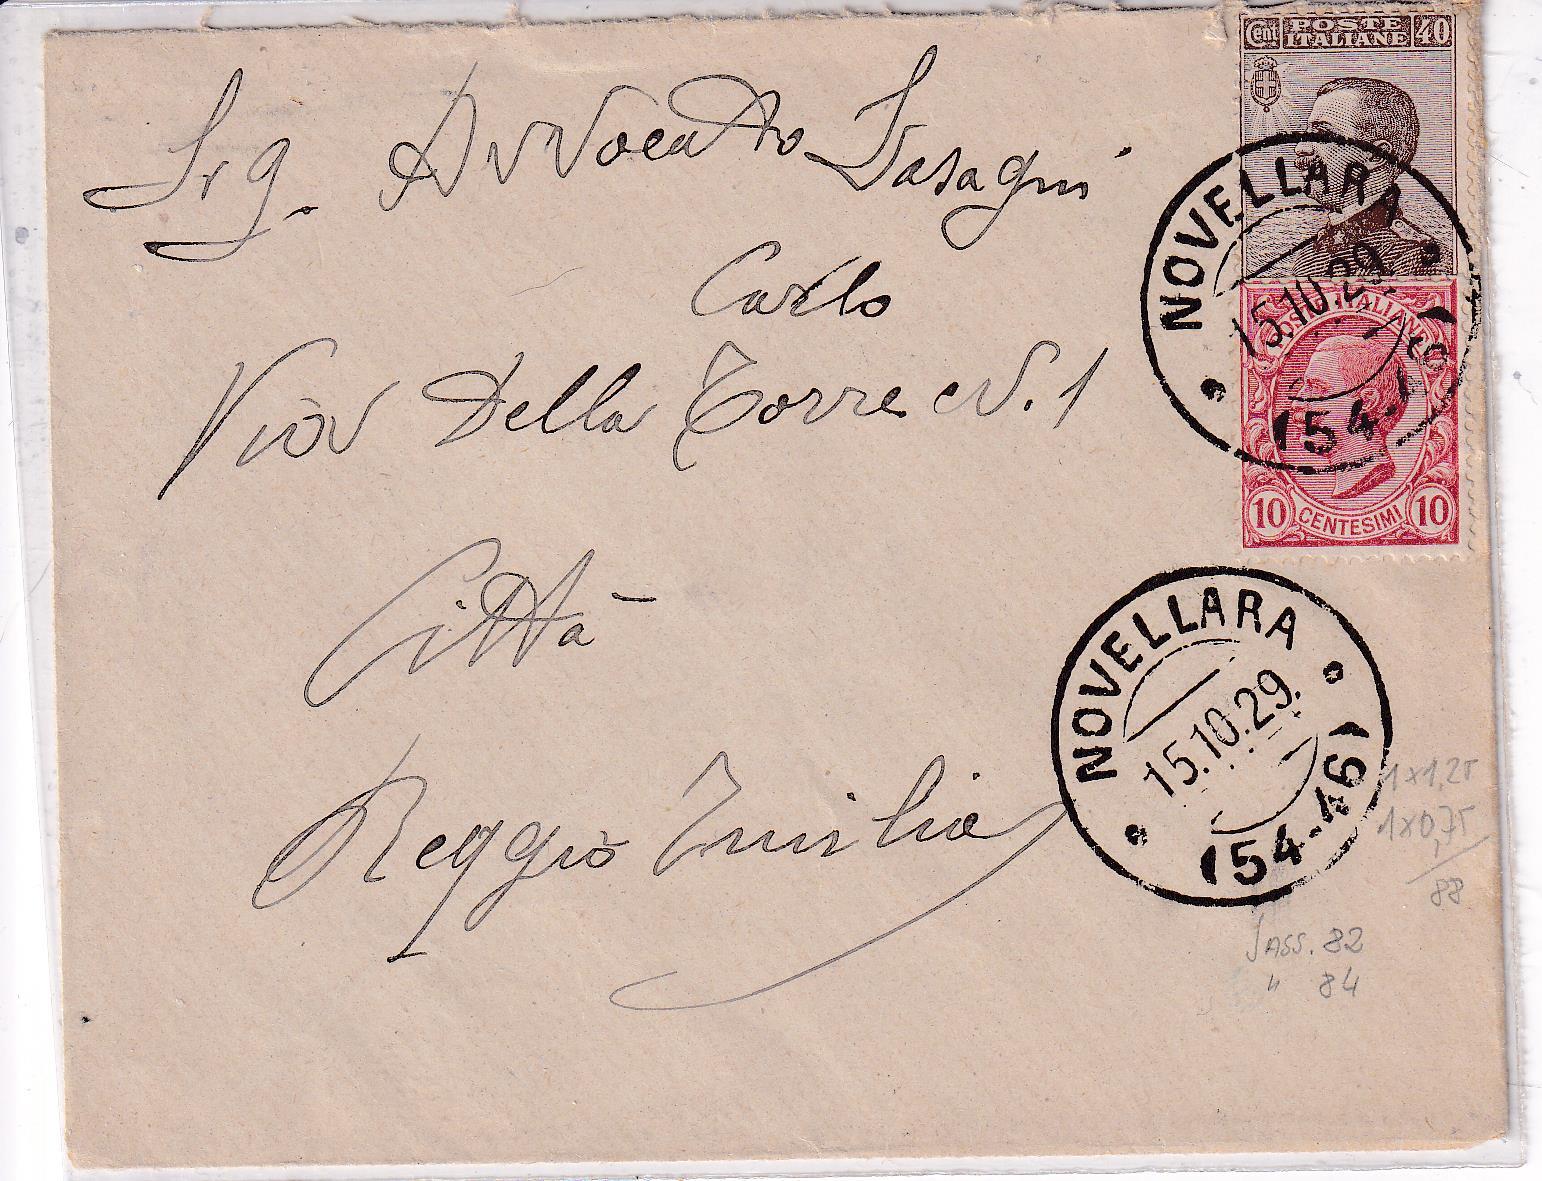 Cent POSTE ITALIANE 40
Sig. Avvocato Lasagni
Carlo
Via Della Torre N. 1
Città
Reggio Emilia
NOVELLARA
15.10.29.
(54-46)
POSTE ITALIANE
10 CENTESIMI 10
NOVELLARA
15.10.29.
(54-46)
1x1,25
1x0,75
88
SASS. 82
" 84